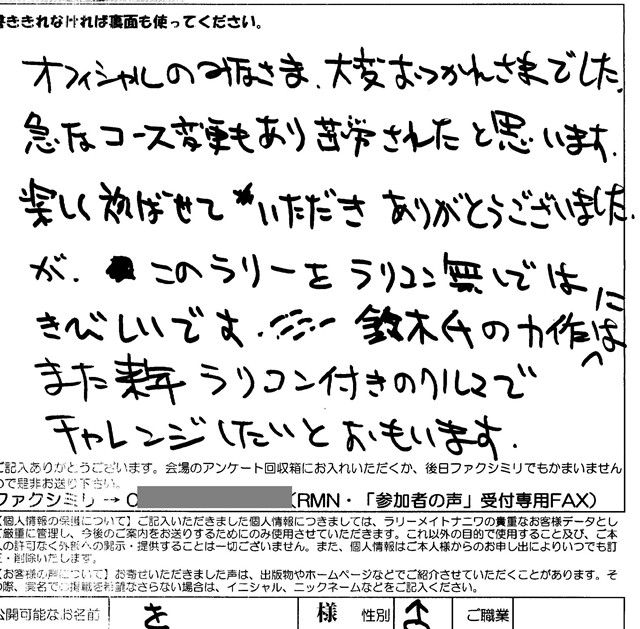 書ききれなければ裏面も使ってください。
オフィシャルのみなさま、大変おつかれさまでした。
急なコース変更もあり苦労されたと思います。
楽しく遊ばせていただき ありがとうございました。
が、このラリーをラリコン無しでは
きびしいです。鈴木氏の力作には
また来年ラリコン付きのクルマで
チャレンジしたいとおもいます。
ご記入ありがとうございます。会場のアンケート回収箱にお入れいただくか、後日ファクシミリでもかまいません
ので是非お送り下さい。
ファクシミリ→0 (RMN・「参加者の声」受付専用FAX)
【個人情報の保護について】ご記入いただきました個人情報につきましては、ラリーメイトナニワの貴重なお客様データとし
て厳重に管理し、今後のご案内をお送りするためにのみ使用させていただきます。これ以外の目的で使用すること及び、ご本
人の許可なく外部への開示・提供することは一切ございません。また、個人情報はご本人様からのお申し出によりいつでも訂
正・削除いたします。
【お客様の声について】お寄せいただきました声は、出版物やホームページなどでご紹介させていただくことがあります。そ
の際、実名での掲載を希望なさらない場合は、イニシャル、ニックネームなどをご記入ください。
公開可能なお名前 き 様 性別 ご職業